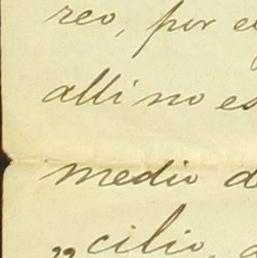 reo, por e
alli no es
medio d
cilio,